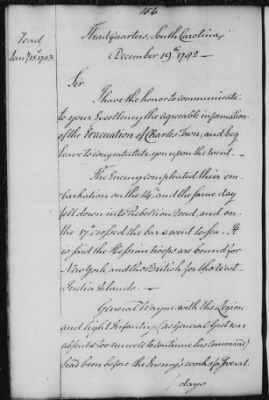 156
Read
Jany 15th 1783
Head Quarters, South Carolina,
December 19th 1782 —
Sir
I have the honor to communicate
to your Excellency the agreeable information
of the Evacuation of Charles Town, and beg
leave to congratulate you upon the event. —
The Enemy compleated their em-
barkation on the 14th and the same day
fell down into Rebellion Road, and on
the 17th crossed the bar & went to sea. It
is said the Hessian troops are bound for
New York, and the British for the West-
India Islands —
General Wayne with the Legion
and light Infantry, (as General Gist was
absent & too unwell to continue his command)
had been before the Enemy's works for several
days